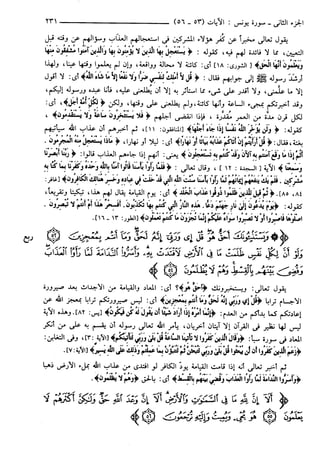 الجزء الثاني - سورة يونس : الآيات (٥٣ - ٥٦) ٢٣١
يقول تعالى مخبراً عن كفر هؤلاء المشركين في استعجالهم العذاب وسؤالهم عن وقته قبل
التعيين، مما لا فائدة لهم فيه، كقوله : ﴿ يَسْتَعْجِلُ بِهَا الَّذِينَ لَا يُؤْمِنُونَ بِهَا وَالَّذِينَ آمَنُوا مُشْفِقُونَ مِنْهَا
وَيَعْلَمُونَ أَنَّهَا الْحَقُّ ﴾ [الشورى: ١٨] أي: كائنة لا محالة وواقعة، وإن لم يعلموا وقتها عيناً، ولهذا
أرشد رسوله ﷺ إلى جوابهم فقال: ﴿ قُل لَّا أَمْلِكُ لِنَفْسِي ضَرًّا وَلَا نَفْعًا إِلَّا مَا شَاءَ اللَّهُ ﴾ أي: لا أقول
إلا ما علمني، ولا أقدر على شيء مما استأثر به إلا أن يطلعني عليه، فأنا عبده ورسوله إليكم،
وقد أخبرتكم بمجيء الساعة وأنها كائنة، ولم يطلعني على وقتها، ولكن ﴿ لِكُلِّ أُمَّةٍ أَجَلٌ ﴾، أي:
لكل قرن مدة من العمر مقدرة، فإذا انقضى أجلهم ﴿ فَلَا يَسْتَأْخِرُونَ سَاعَةً وَلَا يَسْتَقْدِمُونَ ﴾،
كقوله: ﴿ وَلَن يُؤَخِّرَ اللَّهُ نَفْسًا إِذَا جَاءَ أَجَلُهَا ﴾ [المنافقون: ١١]، ثم أخبرهم أن عذاب الله سيأتيهم
بغتة، فقال: ﴿ قُلْ أَرَأَيْتُمْ إِنْ أَتَاكُمْ عَذَابُهُ بَيَاتًا أَوْ نَهَارًا ﴾ أي: ليلاً أو نهاراً، ﴿ مَّاذَا يَسْتَعْجِلُ مِنْهُ الْمُجْرِمُونَ ۝
أَثُمَّ إِذَا مَا وَقَعَ آمَنتُم بِهِ آلْآنَ وَقَدْ كُنتُم بِهِ تَسْتَعْجِلُونَ ﴾ يعني: أنهم إذا جاءهم العذاب قالوا: ﴿ رَبَّنَا أَبْصَرْنَا
وَسَمِعْنَا ﴾ الآية [السجدة: ١٢]، وقال تعالى: ﴿ فَلَمَّا رَأَوْا بَأْسَنَا قَالُوا آمَنَّا بِاللَّهِ وَحْدَهُ وَكَفَرْنَا بِمَا كُنَّا بِهِ
مُشْرِكِينَ ۝ فَلَمْ يَكُ يَنفَعُهُمْ إِيمَانُهُمْ لَمَّا رَأَوْا بَأْسَنَا سُنَّتَ اللَّهِ الَّتِي قَدْ خَلَتْ فِي عِبَادِهِ وَخَسِرَ هُنَالِكَ الْكَافِرُونَ ﴾ [غافر:
٨٤، ٨٥]، ﴿ ثُمَّ قِيلَ لِلَّذِينَ ظَلَمُوا ذُوقُوا عَذَابَ الْخُلْدِ ﴾ أي: يوم القيامة يقال لهم هذا، تبكيتاً وتقريعاً،
كقوله: ﴿ يَوْمَ يُدَعُّونَ إِلَىٰ نَارِ جَهَنَّمَ دَعًّا ۝ هَٰذِهِ النَّارُ الَّتِي كُنتُم بِهَا تُكَذِّبُونَ ۝ أَفَسِحْرٌ هَٰذَا أَمْ أَنتُمْ لَا تُبْصِرُونَ ۝
اصْلَوْهَا فَاصْبِرُوا أَوْ لَا تَصْبِرُوا سَوَاءٌ عَلَيْكُمْ إِنَّمَا تُجْزَوْنَ مَا كُنتُمْ تَعْمَلُونَ ﴾ [الطور: ١٣ - ١٦].
﴿ وَيَسْتَنبِئُونَكَ أَحَقٌّ هُوَ قُلْ إِي وَرَبِّي إِنَّهُ لَحَقٌّ وَمَا أَنتُم بِمُعْجِزِينَ ربع
۝ وَلَوْ أَنَّ لِكُلِّ نَفْسٍ ظَلَمَتْ مَا فِي الْأَرْضِ لَافْتَدَتْ بِهِ وَأَسَرُّوا النَّدَامَةَ لَمَّا رَأَوُا الْعَذَابَ
وَقُضِيَ بَيْنَهُم بِالْقِسْطِ وَهُمْ لَا يُظْلَمُونَ ۝ ﴾
يقول تعالى: ويستخبرونك ﴿ أَحَقٌّ هُوَ ﴾؟ أي: المعاد والقيامة من الأجداث بعد صيرورة
الأجسام تراباً ﴿ قُلْ إِي وَرَبِّي إِنَّهُ لَحَقٌّ وَمَا أَنتُم بِمُعْجِزِينَ ﴾ أي: ليس صيرورتكم تراباً بمعجز الله عن
إعادتكم كما بدأكم من العدم: ﴿ إِنَّمَا أَمْرُهُ إِذَا أَرَادَ شَيْئًا أَن يَقُولَ لَهُ كُن فَيَكُونُ ﴾ [يس: ٨٢]. وهذه الآية
ليس لها نظير في القرآن إلا آيتان أخريان، يأمر الله تعالى رسوله أن يقسم به على من أنكر
المعاد في سورة سبأ: ﴿ وَقَالَ الَّذِينَ كَفَرُوا لَا تَأْتِينَا السَّاعَةُ قُلْ بَلَىٰ وَرَبِّي لَتَأْتِيَنَّكُمْ ﴾ [الآية: ٣]، وفي التغابن:
﴿ زَعَمَ الَّذِينَ كَفَرُوا أَن لَّن يُبْعَثُوا قُلْ بَلَىٰ وَرَبِّي لَتُبْعَثُنَّ ثُمَّ لَتُنَبَّؤُنَّ بِمَا عَمِلْتُمْ وَذَٰلِكَ عَلَى اللَّهِ يَسِيرٌ ﴾ [الآية: ٧].
ثم أخبر تعالى أنه إذا قامت القيامة يودّ الكافر لو افتدى من عذاب الله بملء الأرض ذهباً
﴿ وَأَسَرُّوا النَّدَامَةَ لَمَّا رَأَوُا الْعَذَابَ وَقُضِيَ بَيْنَهُم بِالْقِسْطِ ﴾ أي: بالحق ﴿ وَهُمْ لَا يُظْلَمُونَ ﴾.
﴿ أَلَا إِنَّ لِلَّهِ مَا فِي السَّمَاوَاتِ وَالْأَرْضِ أَلَا إِنَّ وَعْدَ اللَّهِ حَقٌّ وَلَٰكِنَّ أَكْثَرَهُمْ لَا
يَعْلَمُونَ ۝ هُوَ يُحْيِي وَيُمِيتُ وَإِلَيْهِ تُرْجَعُونَ ۝ ﴾